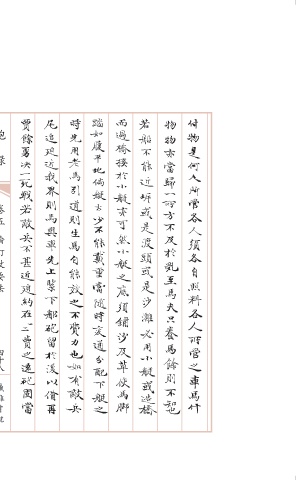 什物是何人所管各人須各自照料各人所管之車馬什
物物亦當歸一方方不及於亂至馬夫只養馬餘則不知也
若船不能近坍或是渡頭或是沙灘必用小艇或造橋
而過橋接於小艇亦可然小艇之底須鋪沙及草使馬腳
踏如履平地倘艇太少不能載重當隨時變通分配下艇之
時先用老馬引道則生馬勾能效之不費力也如有敵兵
尾追迫近我界則馬與車先上棨下都砲留於後以備再
賈餘勇決一死戰若敵兵不甚近迫約在一二賈之遠砲團當